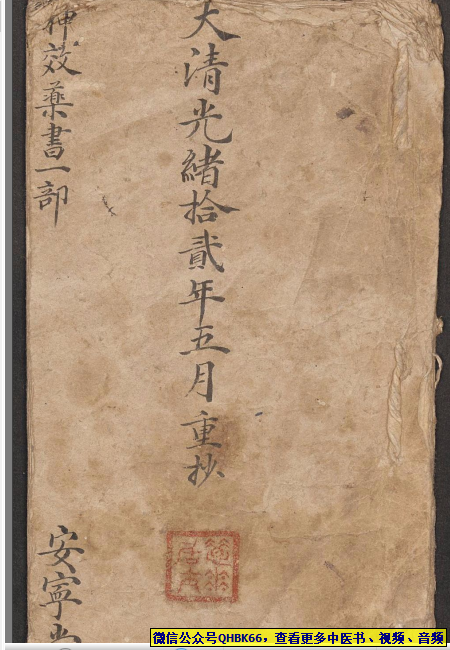 大清光緒拾貳年五月重抄
神效藥書一部
安寧堂
微信公众号QHBK66，查看更多中医书、视频、音频